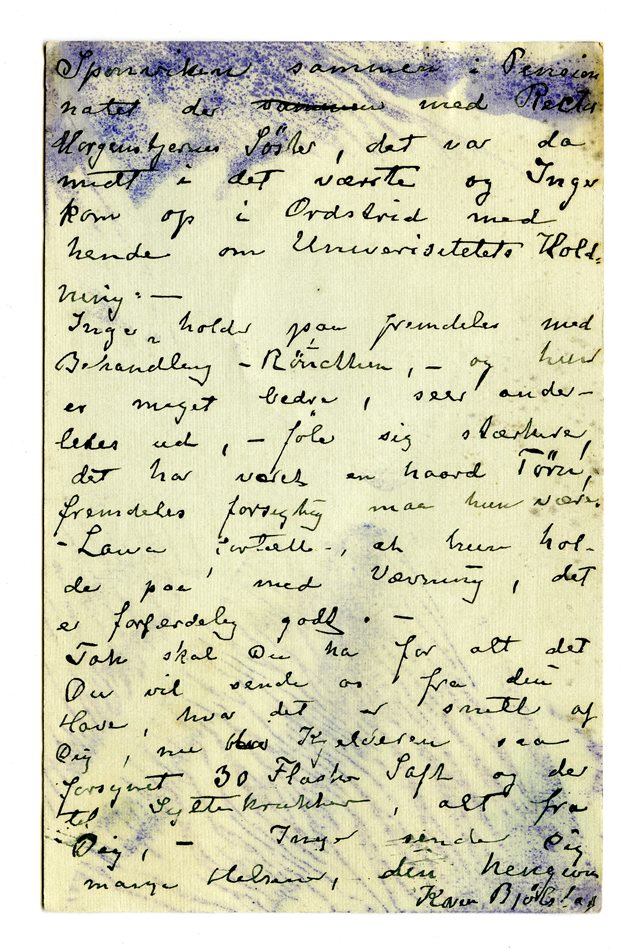 Sponviken sammen i Pension
natet der sammen med Rects
Morgenstjernes Söster, det var da
midt i det værste og Inger
kom op i Ordstrid med
hende om Universitetets Hold-
ning: —
Inger holder paa fremdeles med
Behandling – og hun
er meget bedre, seer ander-
ledes ud, – föler sig stærkere,
det har været en haard Törn,
fremdeles forsigtig maa hun være.
– Laura fortæller, at hun hol-
der paa med Vævning, det
er forfærdelig godt. —
Tak skal Du ha for alt det
Du vil sende os fra din
Have, hvor det er snilt af
Dig, nu Kjelderen saa
forsynet 30 Flasker Saft og der
til Syltekrukker, alt fra
Dig, – Inger sender Dig
mange Helsener, din hengivne
Karen Bjölstad